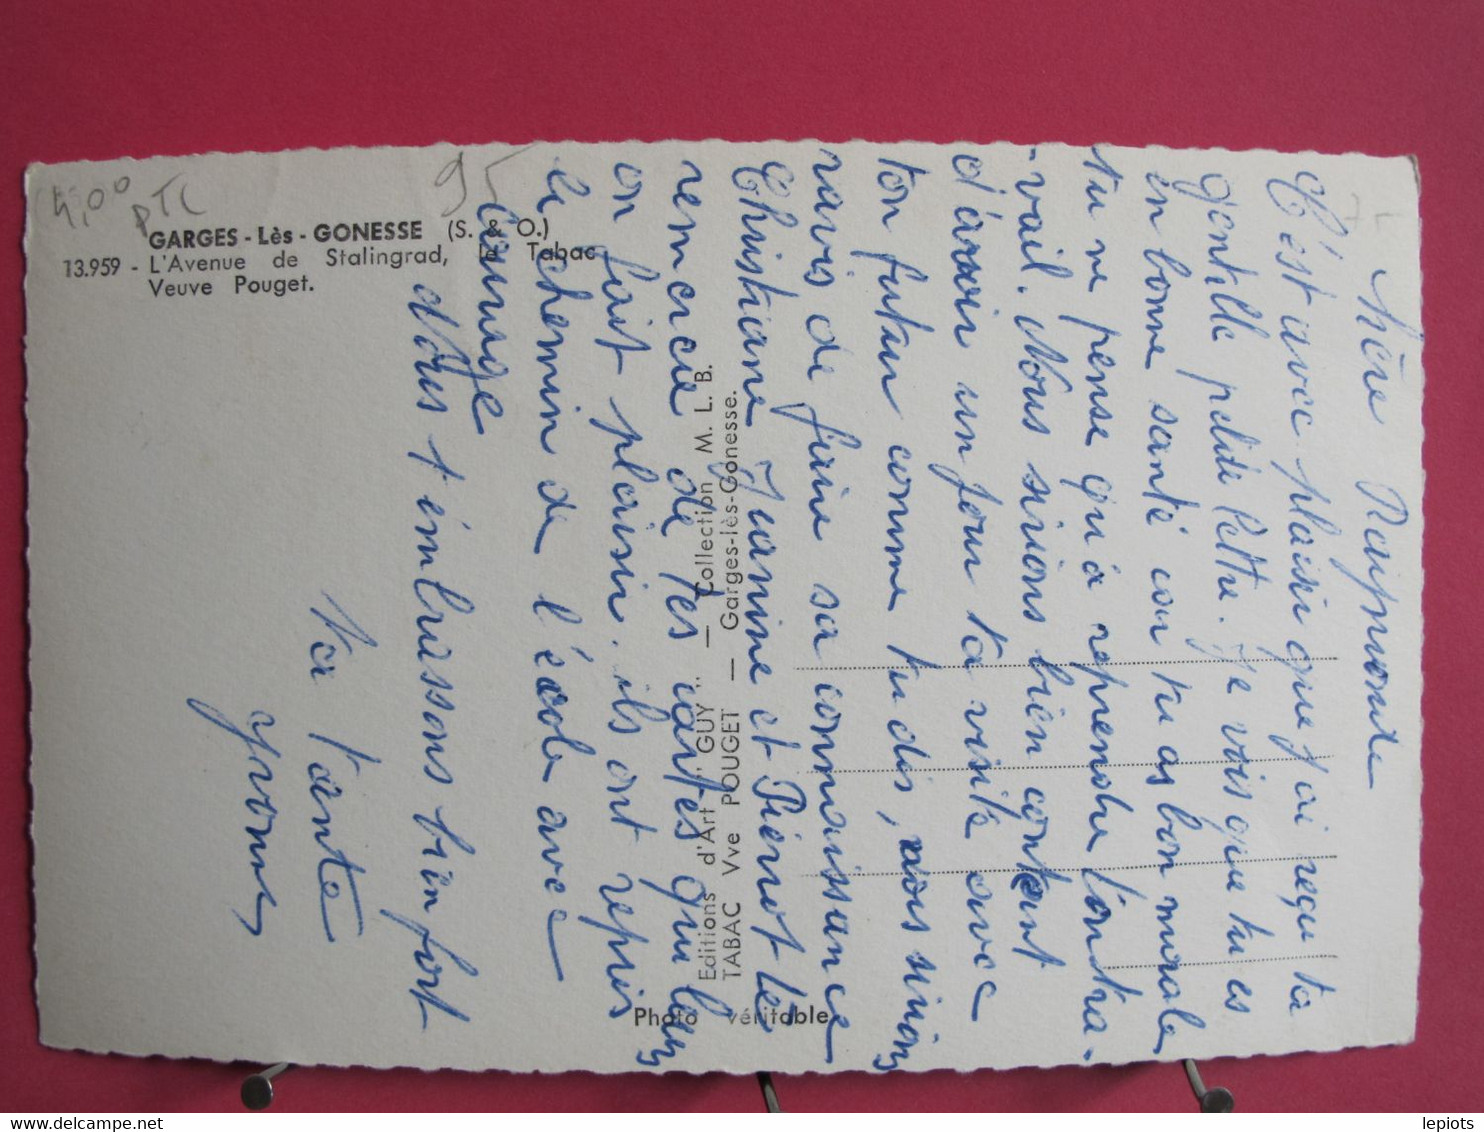 4,00 PTC
95
GARGES - Lès - GONESSE (S. & O.)
13.959 - L'Avenue de Stalingrad, Le Tabac
Veuve Pouget.
Editions d'Art "GUY" — Collection M. L. B.
TABAC Vve POUGET — Garges-lès-Gonesse.
Photo véritable
Raymonde
C'est avec plaisir que j'ai reçu ta
gentille petite lettre. Je vois que tu es
en bonne santé con tu as bon morale
tu ne pense qu'à reprendre ton tra-
-vail. Nous sirions bien content
d'avoir un jour ta visite avec
ton futur comme tu dis, nous sirions
ravis de faire sa connaissance
Christiane Jeanine et Pierrot tes
remercie de tes cartes qui leurs
on fait plaisir. ils ont repris
le chemin de l'école avec
courage
Nous t'embrassons bien fort
Ta tante
Yvonne
lepiots